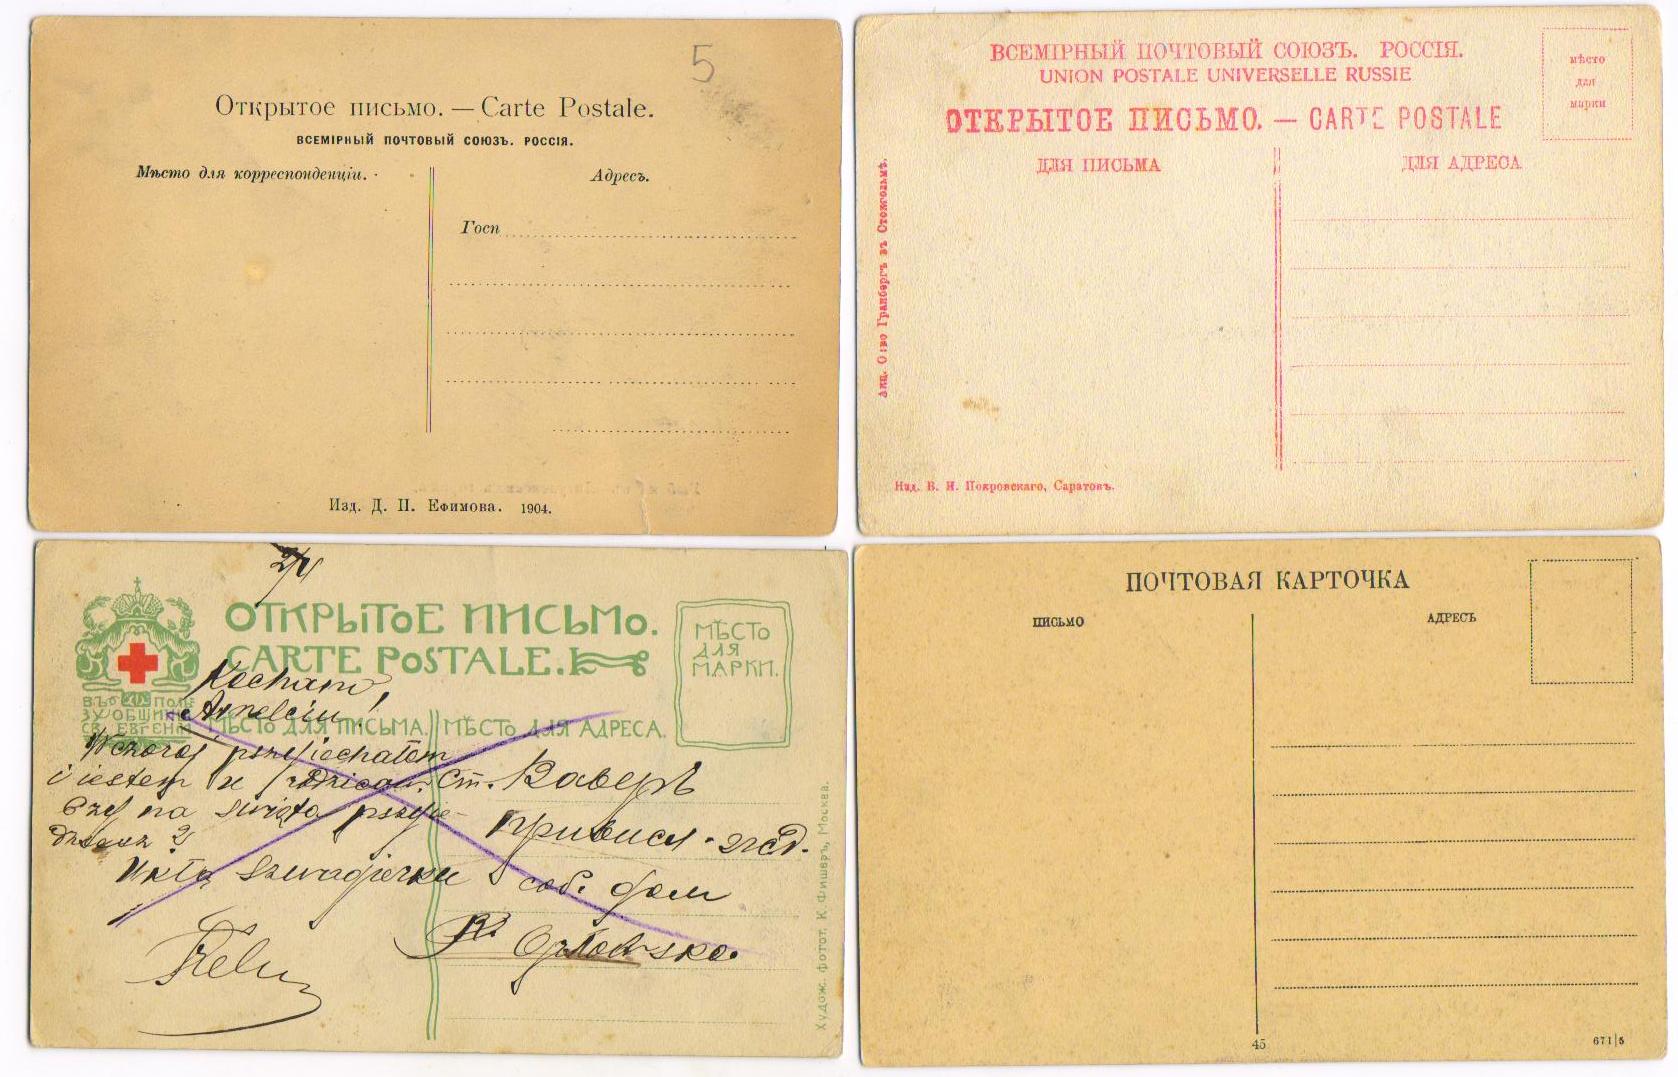 5
Открытое письмо. — Carte Postale.
ВСЕМІРНЫЙ ПОЧТОВЫЙ СОЮЗЪ. РОССІЯ.
Мѣсто для корреспонденціи.
Адресъ.
Госп
Изд. Д. П. Ефимова. 1904.
ВСЕМІРНЫЙ ПОЧТОВЫЙ СОЮЗЪ. РОССІЯ.
UNION POSTALE UNIVERSELLE RUSSIE
ОТКРЫТОЕ ПИСЬМО. — CARTE POSTALE
мѣсто
для
марки
ДЛЯ ПИСЬМА
ДЛЯ АДРЕСА
Акц. О-во Гранбергъ въ Стокгольмѣ.
Изд. В. И. Покровскаго, Саратовъ.
ОТКРЫТОЕ ПИСЬМО.
CARTE POSTALE.
МѢСТО
ДЛЯ
МАРКИ.
ВЪ ПОЛЬ
ЗУ ОБЩИНЫ
СВ. ЕВГЕНІИ
МѢСТО ДЛЯ ПИСЬМА.
МѢСТО ДЛЯ АДРЕСА.
Kochana
Anielciu!
Wczoraj przyjechałem
i jestem u
Czy na święta
szwagierku
Ст. Ваверъ
Привисл.
соб. дом
Худож. фотот. К. Фишеръ, Москва.
ПОЧТОВАЯ КАРТОЧКА
ПИСЬМО
АДРЕСЪ
45
671|5